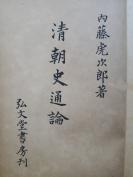 内藤虎次郎著
清朝史通論
弘文堂書房刊